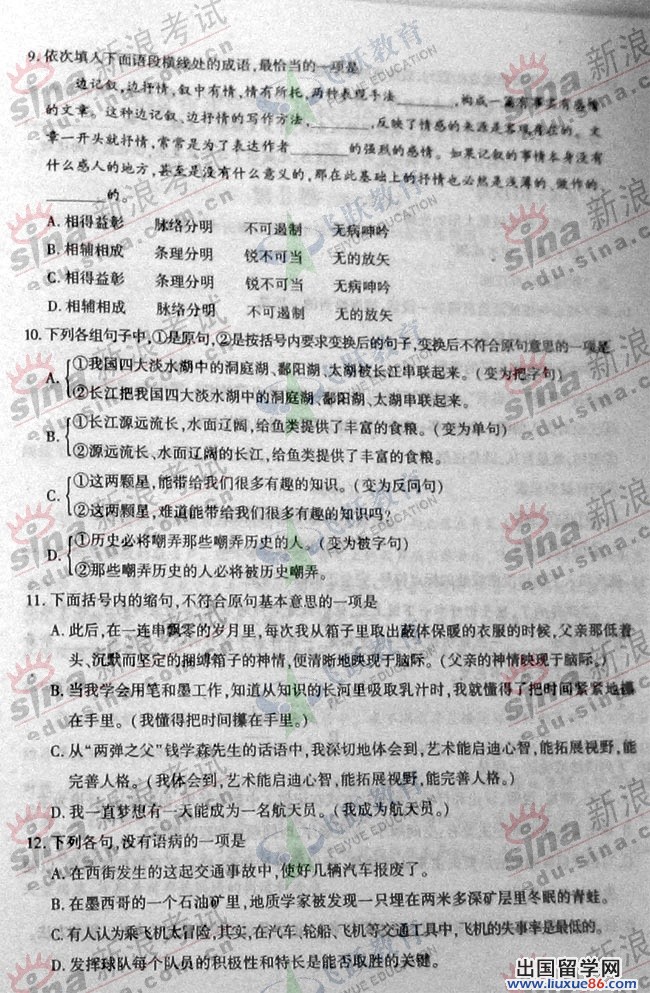 9. 依次填入下面语段横线处的成语,最恰当的一项是
边记叙,边抒情,叙中有情,情有所托,两种表现手法________,构成一篇有事实有感情
的文章。这种边记叙、边抒情的写作方法,________,反映了情感的来源是客观存在的。文
章一开头就抒情,常常是为了表达作者________的强烈的感情。如果记叙的事情本身没有
什么感人的地方,甚至是没有什么意义的,那在此基础上的抒情也必然是浅薄的、做作的
________的。
A. 相得益彰 脉络分明 不可遏制 无病呻吟
B. 相辅相成 条理分明 不可遏制 无的放矢
C. 相得益彰 条理分明 锐不可当 无病呻吟
D. 相辅相成 脉络分明 锐不可当 无的放矢
10. 下列各组句子中,①是原句,②是按括号内要求变换后的句子,变换后不符合原句意思的一项是
A. ①我国四大淡水湖中的洞庭湖、鄱阳湖、太湖被长江串联起来。(变为把字句)
②长江把我国四大淡水湖中的洞庭湖、鄱阳湖、太湖串联起来。
B. ①长江源远流长、水面辽阔,给鱼类提供了丰富的食粮。(变为单句)
②源远流长、水面辽阔的长江,给鱼类提供了丰富的食粮。
C. ①这两颗星,能带给我们很多有趣的知识。(变为反问句)
②这两颗星,难道能带给我们很多有趣的知识吗?
D. ①历史必将嘲弄那些嘲弄历史的人。(变为被字句)
②那些嘲弄历史的人必将被历史嘲弄。
11. 下面括号内的缩句,不符合原句基本意思的一项是
A. 此后,在一连串飘零的岁月里,每次我从箱子里取出蔽体保暖的衣服的时候,父亲那低着
头、沉默而坚定的捆缚箱子的神情,便清晰地映现于脑际。(父亲的神情映现于脑际。)
B. 当我学会用笔和墨工作,知道从知识的长河里吸取乳汁时,我就懂得了把时间紧紧地攥
在手里。(我懂得把时间攥在手里。)
C. 从“两弹之父”钱学森先生的话语中,我深切地体会到,艺术能启迪心智,能拓展视野,能
完善人格。(我体会到,艺术能启迪心智,能拓展视野,能完善人格。)
D. 我一直梦想有一天能成为一名航天员。(我成为航天员。)
12. 下列各句,没有语病的一项是
A. 在西街发生的这起交通事故中,使好几辆汽车报废了。
B. 在墨西哥的一个石油矿里,地质学家被发现一只埋在两米多深矿层里冬眠的青蛙。
C. 有人认为乘飞机太冒险,其实,在汽车、轮船、飞机等交通工具中,飞机的失事率是最低的。
D. 发挥球队每个队员的积极性和特长是能否取胜的关键。
出国留学网
www.liuxue86.com